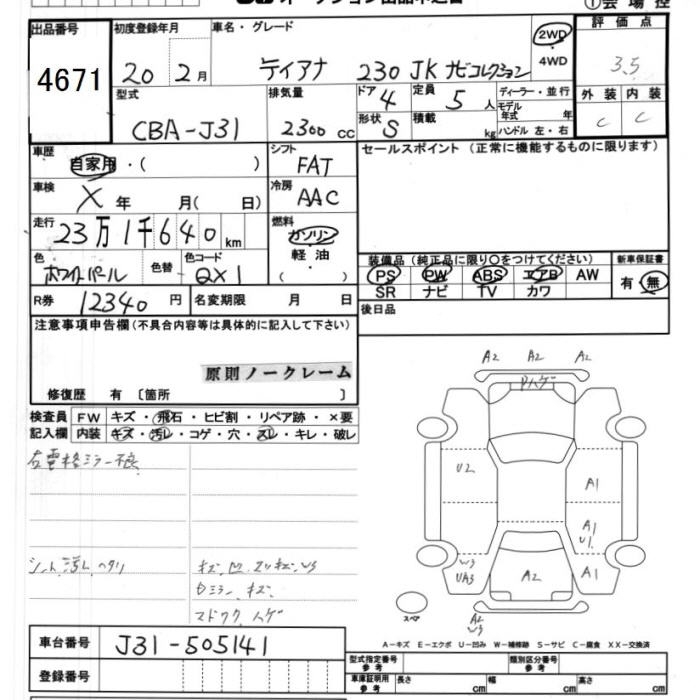 ①会場控
出品番号 初度登録年月 車名・グレード 2WD 評価点
4671 20 2月 ティアナ 230 JK ナビコレクション 4WD 3.5
型式 排気量 ドア 4 定員 5 人 ディーラー・並行 外装 内装
CBA-J31 2300 cc 形状 S 積載 kg モデル年式 年 C C
ハンドル 左・右
車歴 自家用・( ) シフト FAT セールスポイント (正常に機能するものに限ります)
車検 X 年 月( 日) 冷房 AAC
走行 23万1千640km 燃料 ガソリン・軽油
色 ホワイトパール 色替 色コード QX1 装備品 (純正品に限り○をつけてください) 新車保証書
PS PW ABS エアB AW 有・無
R券 12340 円 名変期限 月 日 SR ナビ TV カワ
注意事項申告欄(不具合内容等は具体的に記入して下さい) 後日品
原則ノークレーム
修復歴 有 〔箇所 〕
検査員 FW キズ・飛石・ヒビ割・リペア跡・×要
記入欄 内装 キズ・汚レ・コゲ・穴・スレ・キレ・破レ
右電格ミラー不良
シート汚レ ヘタリ
A2 A2 A2
Pハゲ
U2 A1
A1
U1
W3
UA3 A2 A1
A2
W3
スペア
車台番号 J31-505141
A-キズ E-エクボ U-凹み W-補修跡 S-サビ C-腐食 XX-交換済
登録番号 型式指定番号 参考 類別区分番号 参考
車庫証明用 参考 長さ cm 幅 cm 高さ cm